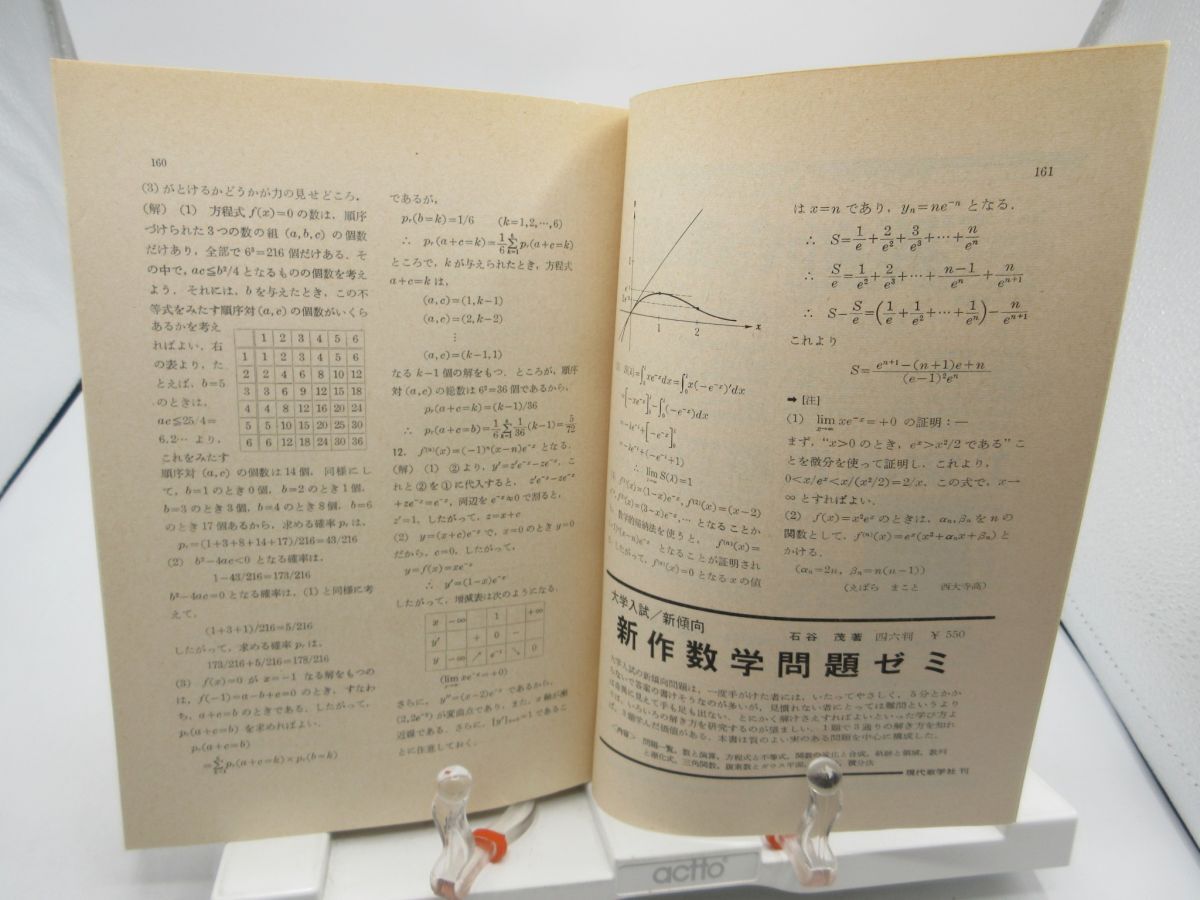 160
(3) がとけるかどうかが力の見せどころ．
(解) (1) 方程式 f(x)=0 の数は，順序
づけられた３つの数の組 (a, b, c) の個数
だけあり，全部で 6³=216 個だけある．そ
の中で，ac≦b²/4 となるものの個数を考え
よう．それには，b を与えたとき，この不
等式をみたす順序対 (a, c) の個数がいくら
あるかを考え
ればよい．右
の表より，た
とえば，b=5
のときは，
ac≦25/4=
6.2… より，
これをみたす
1 2 3 4 5 6
1 1 2 3 4 5 6
2 2 4 6 8 10 12
3 3 6 9 12 15 18
4 4 8 12 16 20 24
5 5 10 15 20 25 30
6 6 12 18 24 30 36
順序対 (a, c) の個数は14個．同様にし
て，b=1 のとき０個，b=2 のとき１個，
b=3 のとき３個，b=4 のとき８個，b=6
のとき17個あるから，求める確率 pᵣ は，
pᵣ=(1+3+8+14+17)/216=43/216
(2) b²−4ac<0 となる確率は，
1−43/216=173/216
b²−4ac=0 となる確率は，(1)と同様に考
えて，
(1+3+1)/216=5/216
したがって，求める確率 pᵣ は，
173/216+5/216=178/216
(3) f(x)=0 が x=−1 なる解をもつの
は，f(−1)=a−b+c=0 のとき，すなわ
ち，a+c=b のときである．したがって，
pᵣ(a+c=b) を求めればよい．
pᵣ(a+c=b)
=Σpᵣ(a+c=k)×pᵣ(b=k)
であるが，
pᵣ(b=k)=1/6 (k=1,2,…,6)
∴ pᵣ(a+c=k)=1/6 Σpᵣ(a+c=k)
ところで，k が与えられたとき，方程式
a+c=k は，
(a, c)=(1, k−1)
(a, c)=(2, k−2)
⋮
(a, c)=(k−1, 1)
なる k−1 個の解をもつ．ところが，順序
対 (a, c) の総数は 6²=36 個であるから，
pᵣ(a+c=k)=(k−1)/36
∴ pᵣ(a+c=b)=1/6 Σ 1/36 (k−1)=5/72
12. f⁽ⁿ⁾(x)=(−1)ⁿ(x−n)e⁻ˣ となる．
(解) (1) ②より，y'=z'e⁻ˣ−ze⁻ˣ，こ
れと②を①に代入すると，z'e⁻ˣ−ze⁻ˣ
+ze⁻ˣ=e⁻ˣ，両辺を e⁻ˣ≠0 で割ると，
z'=1，したがって，z=x+c
(2) y=(x+c)e⁻ˣ で，x=0 のとき y=0
だから，c=0，したがって，
y=f(x)=xe⁻ˣ
∴ y'=(1−x)e⁻ˣ
したがって，増減表は次のようになる．
x −∞ 1 +∞
y' + 0 −
y −∞ ↗ e⁻¹ ↘ 0
(lim xe⁻ˣ=+0)
さらに，y''=(x−2)e⁻ˣ であるから，
(2, 2e⁻²) が変曲点であり，また，x 軸が漸
近線である．さらに，[y']ₓ₌₀=1 であるこ
とに注意しておく．
161
y
1
1 2 x
S(λ)=∫xe⁻ˣdx=∫x(−e⁻ˣ)'dx
=[−xe⁻ˣ]−∫(−e⁻ˣ)dx
∴ lim S(λ)=1
f⁽¹⁾(x)=(1−x)e⁻ˣ, f⁽²⁾(x)=(x−2)
f⁽³⁾(x)=(3−x)e⁻ˣ, … となることか
数学的帰納法を使うと，f⁽ⁿ⁾(x)=
(x−n)e⁻ˣ となることが証明され
したがって，f⁽ⁿ⁾(x)=0 となる x の値
は x=n であり，yₙ=ne⁻ⁿ となる．
∴ S=1/e+2/e²+3/e³+…+n/eⁿ
∴ S/e=1/e²+2/e³+…+(n−1)/eⁿ+n/eⁿ⁺¹
∴ S−S/e=(1/e+1/e²+…+1/eⁿ)−n/eⁿ⁺¹
これより
S=(eⁿ⁺¹−(n+1)e+n)/((e−1)²eⁿ)
➡ [注]
(1) lim xe⁻ˣ=+0 の証明：—
x→∞
まず，“x>0 のとき，eˣ>x²/2 である” こ
とを微分を使って証明し，これより，
0<x/eˣ<x/(x²/2)=2/x，この式で，x→
∞ とすればよい．
(2) f(x)=x²eˣ のときは，αₙ, βₙ を n の
関数として，f⁽ⁿ⁾(x)=eˣ(x²+αₙx+βₙ) と
かける．
(αₙ=2n, βₙ=n(n−1))
(えばら まこと 西大寺高)
大学入試／新傾向
石谷 茂著 四六判 ￥550
新作数学問題ゼミ
大学入試の新傾向問題は，一度手がけた者には，いたってやさしく，５分とかか
らないで答案の書けそうなのが多いが，見慣れない者にとっては難問というより
は奇異に見えて手も足も出ない．とにかく解けさえすればよいといった学び方よ
りは，いろいろの解き方を研究するのが望ましい．１題で３通りの解き方を知れ
ば，３題学んだ価値がある．本書は質のよい実のある問題を中心に構成した．
<内容> 問題一覧，数と演算，方程式と不等式，関数の変化と合成，軌跡と領域，数列
と漸化式，三角関数，複素数とガウス平面，積分法
現代数学社 刊
actto